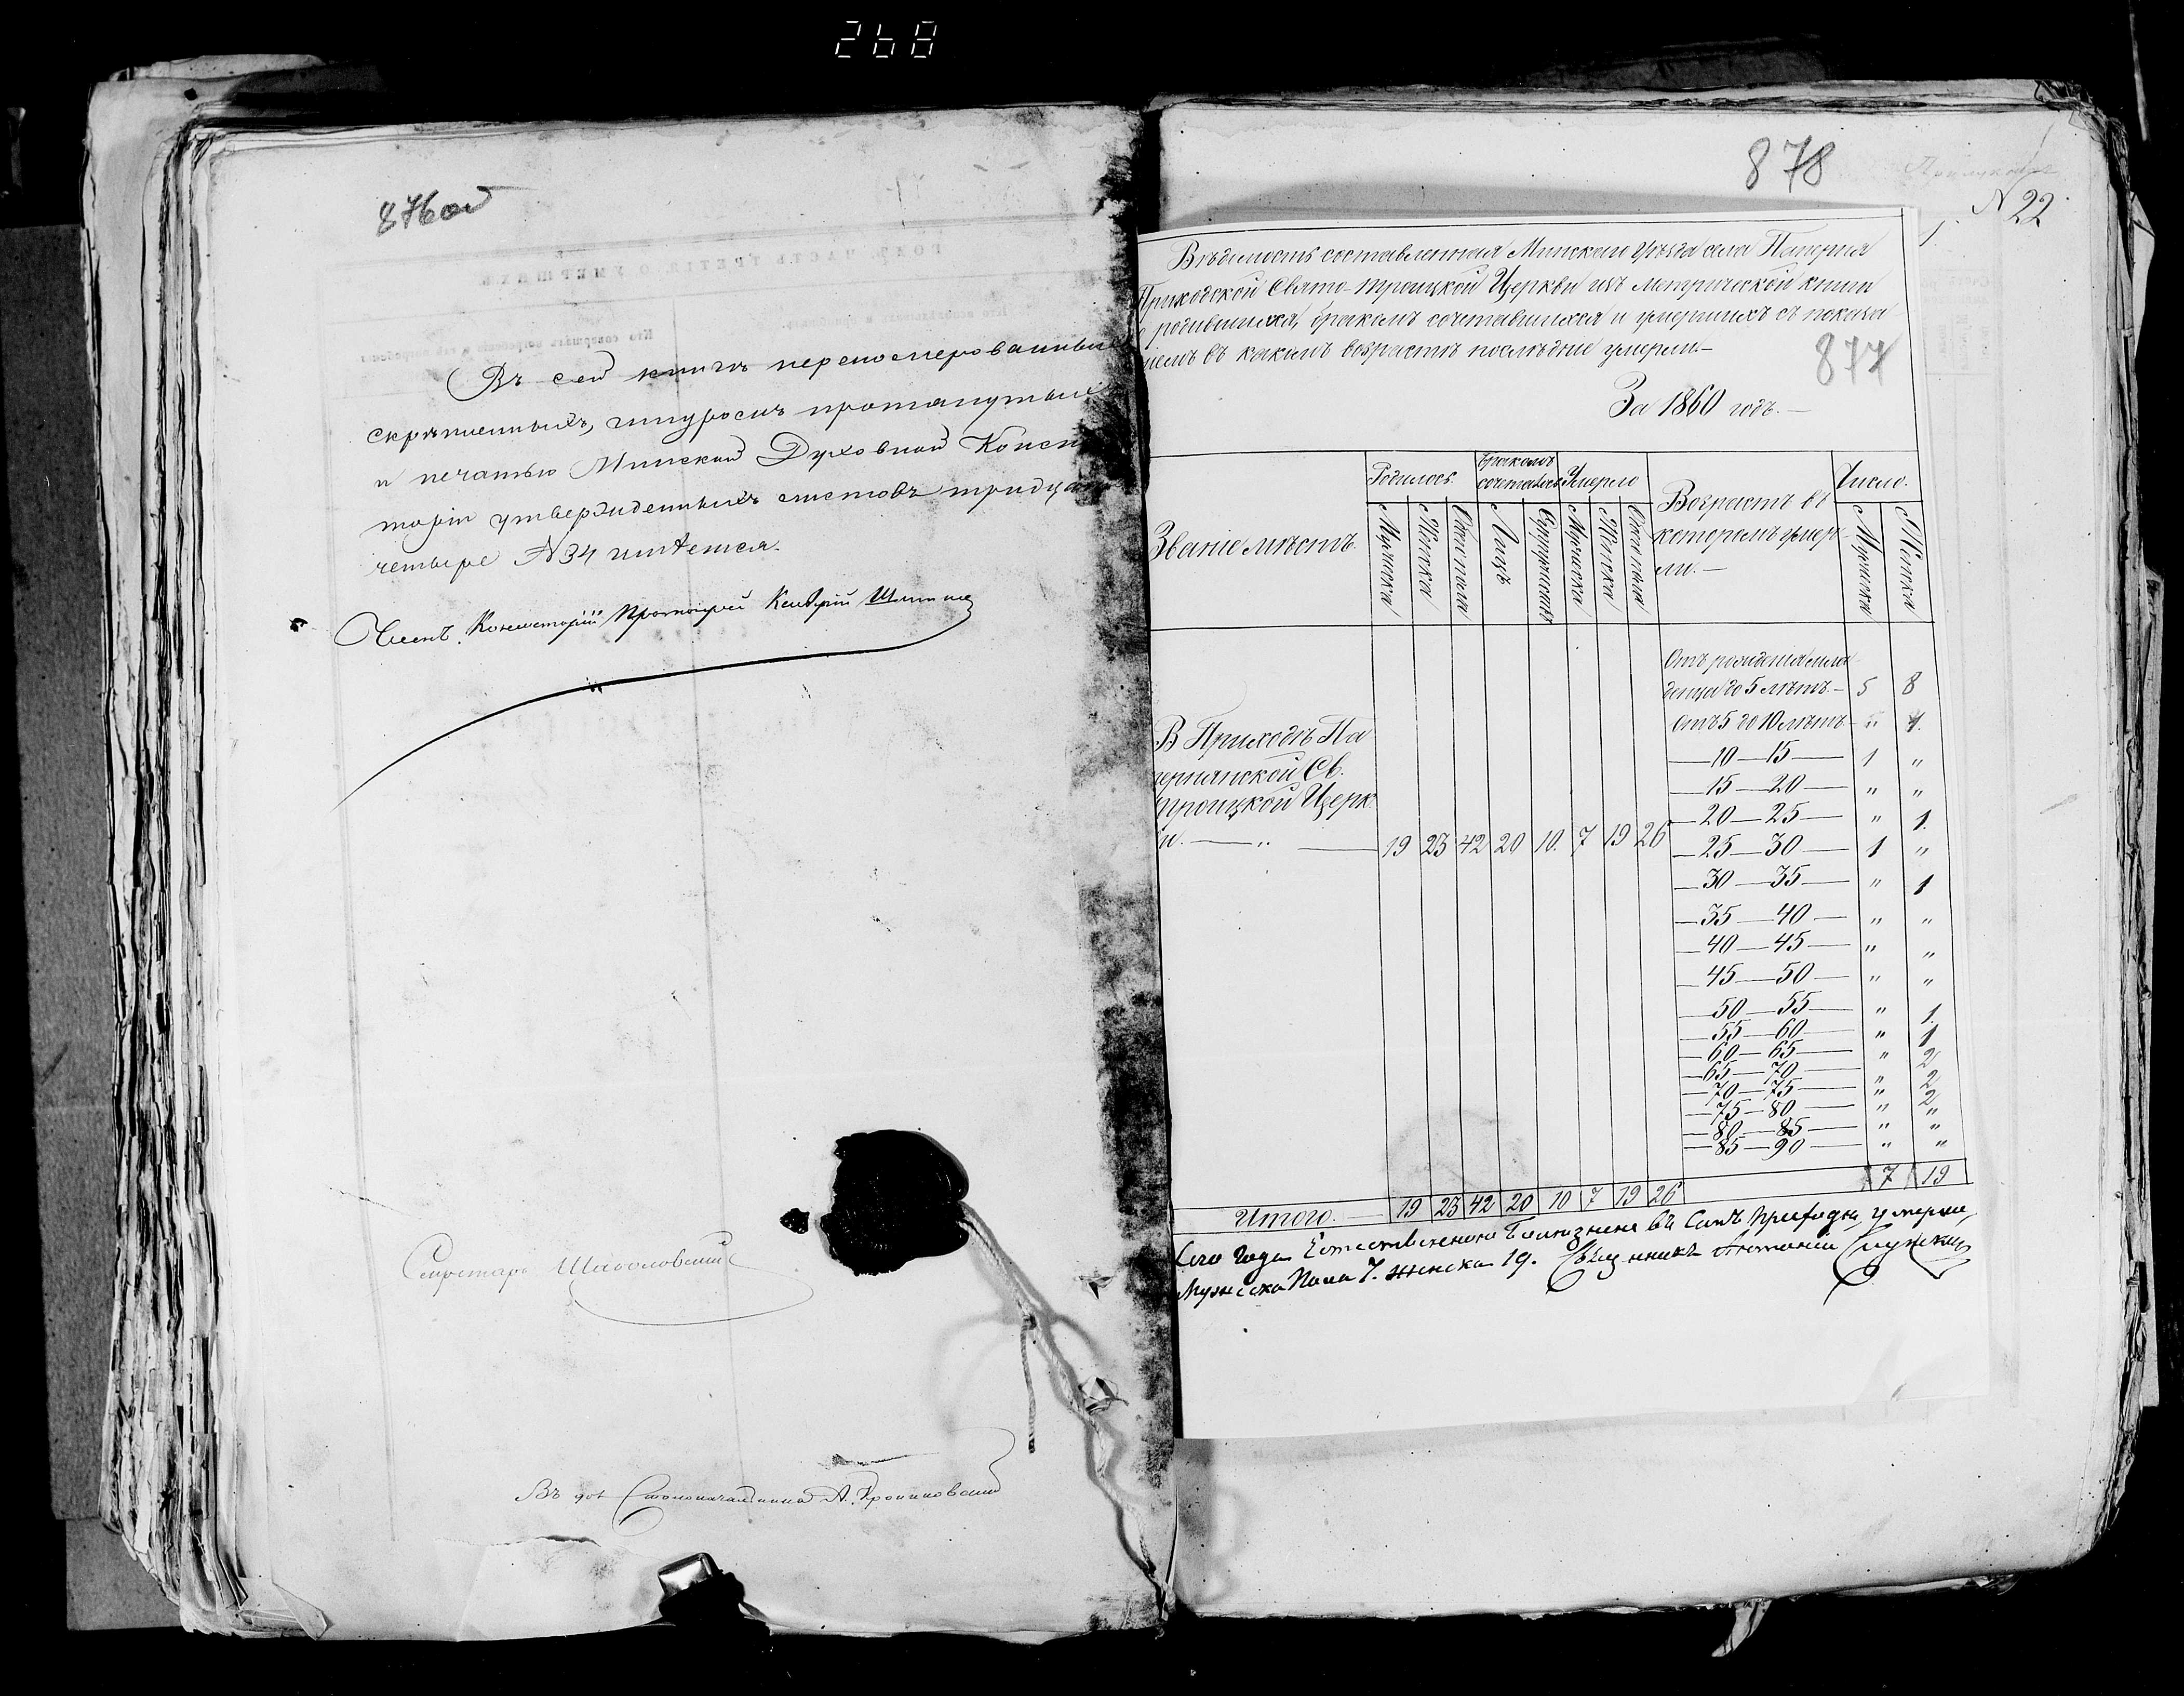 268
876об
Въ сей книгѣ перенумерованныхъ
скрѣпленныхъ, шнуромъ протянутыхъ
и печатью Минской Духовной Консис
торіи утвержденныхъ листовъ тридцать
четыре № 34 имѣется.
Членъ Консисторіи Протоіерей
Секретарь
Въ дол Столоначальника А.
878
№ 22
Вѣдомость составленная Минскаго Уѣзда села Паперня
Приходской Свято-Троицкой Церкви изъ метрической книги
о родившихся, бракомъ сочетавшихся и умершихъ съ показа
ніемъ въ какомъ возрастѣ послѣдніе умерли.—
877
За 1860 годъ.—
Званіе мѣстъ.
Родилось
Бракомъ сочеталось
Умерло
Возрастъ въ
которомъ умер-
ли.—
Число.
Мужеска Женска Обоего пола Лицъ Супружествъ Мужеска Женска Обоего пола Мужеска Женска
Отъ рожденія мла-
денца до 5 лѣтъ.— 5 8
Отъ 5 до 10 лѣтъ— „ 1.
—10—15— 1 „
—15—20— „ „
—20—25— „ 1.
—25—30— 1 „
—30—35— „ 1
—35—40— „ „
—40—45— „ „
—45—50— „ „
—50—55— „ 1.
—55—60— „ 1
—60—65— „ 2
—65—70— „ 2
—70—75— „ 2
—75—80— „ „
—80—85— „ „
—85—90— „ „
7 19
В Приходѣ Па
пернянской Св.
Троицкой Церк
ви.— „ — 19 23 42 20 10. 7 19 26
Итого.— 19 23 42 20 10 7 19 26
Сего года Естественною Болезнею въ Семъ приходѣ умерли,
Мужеска Пола 7. женска 19. Священникъ Антоній